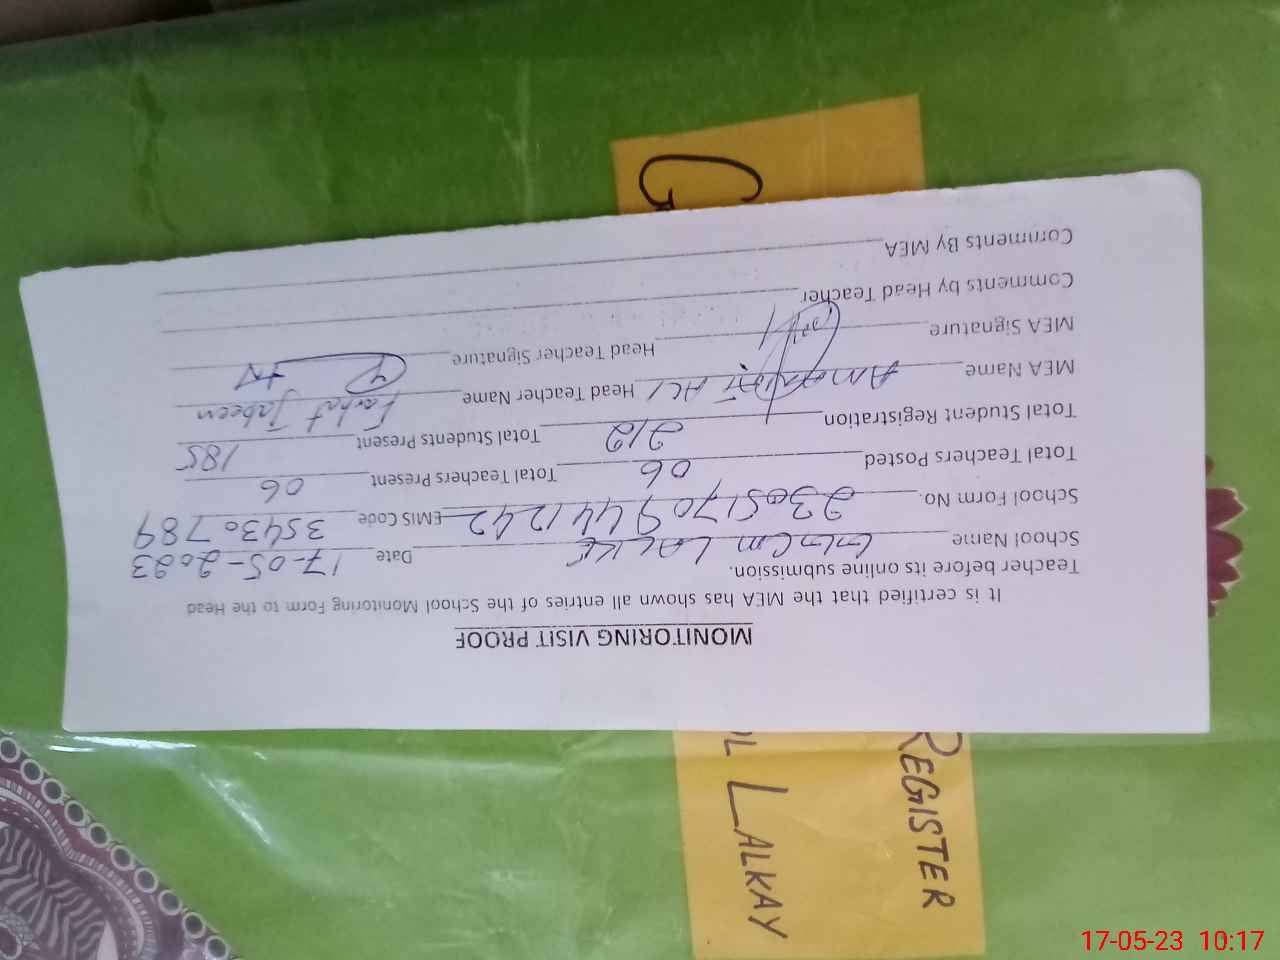 MONITORING VISIT PROOF
It is certified that the MEA has shown all entries of the School Monitoring Form to the Head
Teacher before its online submission.
School Name LALKE Date 17-05-2023
School Form No. 230517094441242 EMIS Code 35430789
Total Teachers Posted 06 Total Teachers Present 06
Total Student Registration 212 Total Students Present 185
MEA Name Amanat Ali Head Teacher Name Farhat Jabeen
MEA Signature Head Teacher Signature
Comments by Head Teacher
Comments By MEA
REGISTER
LALKAY
17-05-23 10:17